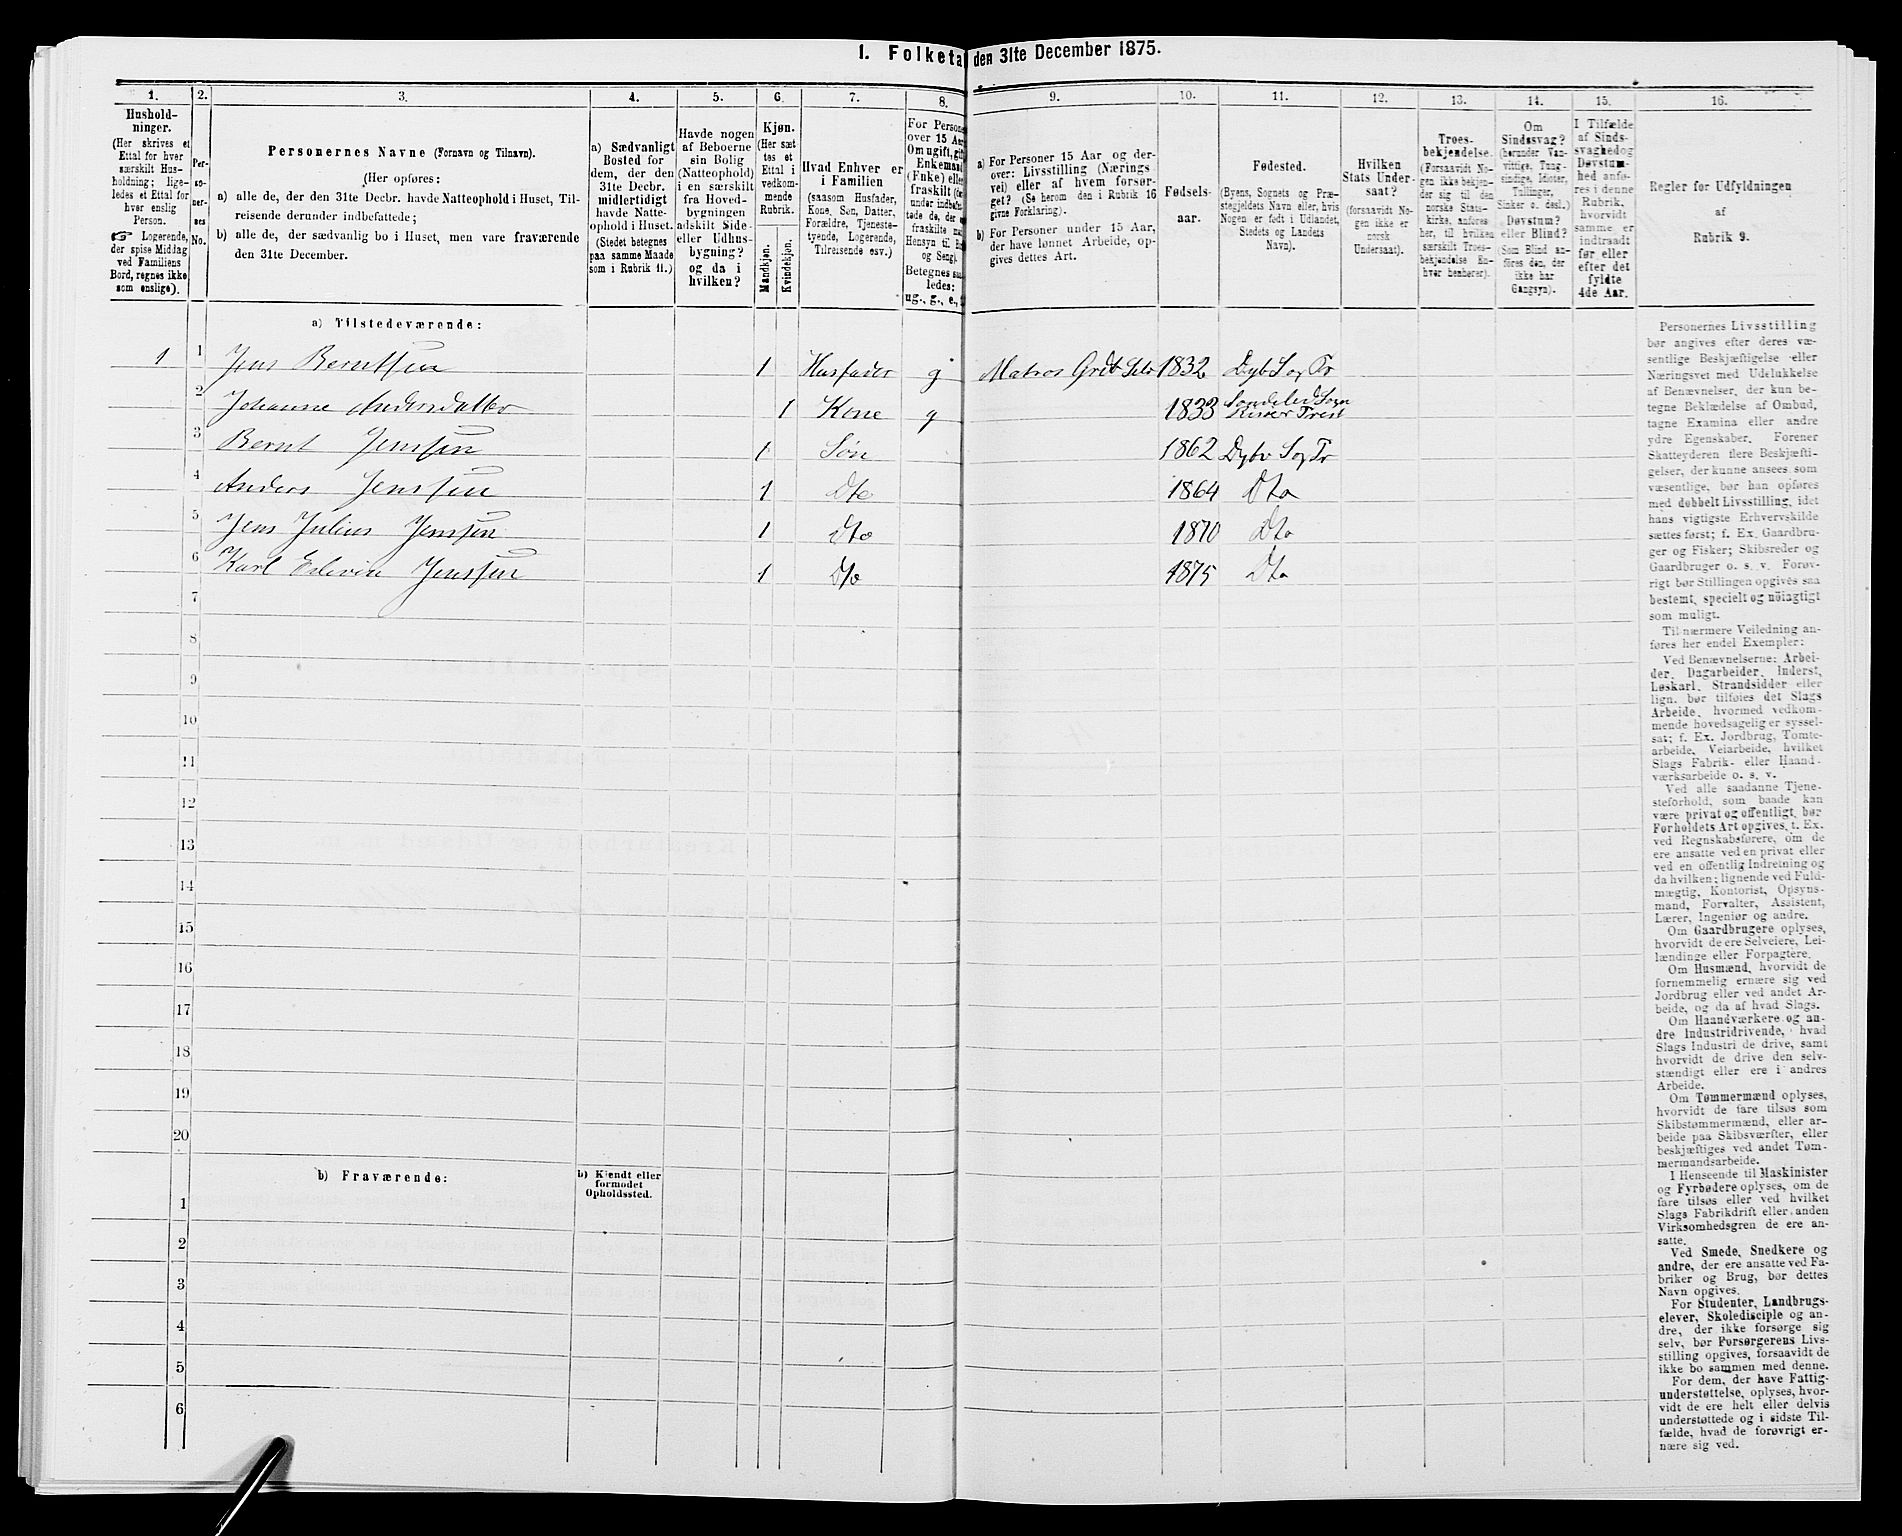 1. Folketa den 31te December 1875.
1. 2. 3. 4. 5. 6. 7. 8. 9. 10. 11. 12. 13. 14. 15. 16.
Husholdninger.
(Her skrives et
Ettal for hver
særskilt Husholdning;
ligeledes
et Ettal for
hver enslig
Person.
☞ Logerende,
der spise Middag
ved Familiens
Bord, regnes ikke
som enslige).
Personernes
No.
Personernes Navne (Fornavn og Tilnavn).
(Her opføres:
a) alle de, der den 31te Decbr. havde Natteophold i Huset, Tilreisende
derunder indbefattede;
b) alle de, der sædvanlig bo i Huset, men vare fraværende
den 31te December.
a) Sædvanligt
Bosted for
dem, der den
31te Decbr.
midlertidigt
havde Natteophold
i Huset.
(Stedet betegnes
paa samme Maade
som i Rubrik 11.)
Havde nogen
af Beboerne
sin Bolig
(Natteophold)
i en særskilt
fra Hovedbygningen
adskilt Side-
eller Udhusbygning?
og da i
hvilken?
Kjøn.
(Her sættes
et
Ettal i
vedkommende
Rubrik.
Mandkjøn.
Kvindekjøn.
Hvad Enhver er
i Familien
(saasom Husfader,
Kone, Søn, Datter,
Forældre, Tjenestetyende,
Logerende,
Tilreisende osv.)
For Persone
over 15 Aar
Om ugift, gift
Enkemand
(Enke) eller
fraskilt
Betegnes saaledes:
ug., g., e.,
a) For Personer 15 Aar og derover:
Livsstilling (Næringsvei)
eller af hvem forsørget?
(Se herom den i Rubrik 16
givne Forklaring).
b) For Personer under 15 Aar,
der have lønnet Arbeide, opgives
dettes Art.
Fødselsaar.
Fødested.
(Byens, Sognets og Præstegjeldets
Navn eller, hvis
Nogen er født i Udlandet,
Stedets og Landets
Navn).
Hvilken
Stats Undersaat?
(forsaavidt Nogen
ikke er
norsk
Undersaat).
Troesbekjendelse.
(Forsaavidt Nogen
ikke bekjender
sig til den
norske Statskirke,
anføres
her, til hvilken
særskilt Troesbekjendelse
Enhver
henhører).
Om
Sindssvag?
(herunder Vanvittige,
Tungsindige,
Idioter,
Tullinger,
Sinker o. desl.)
Døvstum?
eller Blind?
(Som Blind anføres
den, der
ikke har
Gangsyn).
I Tilfælde
af Sindssvaghed
og
Døvstumhed
anføres
i denne
Rubrik,
hvorvidt
samme er
indtraadt
før eller
efter det
fyldte
4de Aar.
Regler for Udfyldningen
af
Rubrik 9.
a) Tilstedeværende:
1 1 Jens Berntsen 1 Husfader g Matros 1832 Dybv S og Pr
2 Johanne Andersdatter 1 Kone g 1833 Søndeled Sogn
Risøer Prest
3 Bernt Jenssen 1 Søn 1862 Dybv S og Pr
4 Anders Jenssen 1 Dto 1864 Dto
5 Jens Julius Jenssen 1 Dto 1870 Dto
6 Karl Jenssen 1 Dto 1875 Dto
7
8
9
10
11
12
13
14
15
16
17
18
19
20
b) Fraværende: b) Kjendt eller
formodet
Opholdssted.
1
2
3
4
5
6
Personernes Livsstilling
bør angives efter deres væsentlige
Beskjæftigelse eller
Næringsvei med Udelukkelse
af Benævnelser, der kun betegne
Beklædelse af Ombud,
tagne Examina eller andre
ydre Egenskaber. Forener
Skatteyderen flere Beskjæftigelser,
der kunne ansees som
væsentlige, bør han opføres
med dobbelt Livsstilling, idet
hans vigtigste Erhvervskilde
sættes først; f. Ex. Gaardbruger
og Fisker; Skibsreder og
Gaardbruger o. s. v. Forøvrigt
bør Stillingen opgives saa
bestemt, specielt og nøiagtigt
som muligt.
Til nærmere Veiledning anføres
her endel Exempler:
Ved Benævnelserne: Arbeider,
Dagarbeider, Inderst,
Løskarl, Strandsidder eller
lign. bør tilføies det Slags
Arbeide, hvormed vedkommende
hovedsagelig er sysselsat;
f. Ex. Jordbrug, Tomtearbeide,
Veiarbeide, hvilket
Slags Fabrik- eller Haandværksarbeide
o. s. v.
Ved alle saadanne Tjenesteforhold,
som baade kan
være privat og offentligt, bør
Forholdets Art opgives, t. Ex.
ved Regnskabsførere, om de
ere ansatte ved en privat eller
ved en offentlig Indretning og
da hvilken; lignende ved Fuldmægtig,
Kontorist, Opsynsmand,
Forvalter, Assistent,
Lærer, Ingeniør og andre.
Om Gaardbrugere oplyses,
hvorvidt de ere Selveiere, Leilændinge
eller Forpagtere.
Om Husmænd, hvorvidt de
fornemmelig ernære sig ved
Jordbrug eller ved andet Arbeide,
og da af hvad Slags.
Om Haandværkere og andre
Industridrivende, hvad
Slags Industri de drive, samt
hvorvidt de drive den selvstændigt
eller ere i andres
Arbeide.
Om Tømmermænd oplyses,
hvorvidt de fare tilsøs som
Skibstømmermænd, eller arbeide
paa Skibsværfter, eller
beskjæftiges ved andet Tømmermandsarbeide.
I Henseende til Maskinister
og Fyrbødere oplyses, om de
fare tilsøs eller ved hvilket
Slags Fabrikdrift eller anden
Virksomhedsgren de ere ansatte.
Ved Smede, Snedkere og
andre, der ere ansatte ved Fabriker
og Brug, bør dettes
Navn opgives.
For Studenter, Landbrugselever,
Skoledisciple og andre,
der ikke forsørge sig
selv, bør Forsørgerens Livsstilling
opgives, forsaavidt de
ikke bo sammen med denne.
For dem, der have Fattigunderstøttelse,
oplyses, hvorvidt
de ere helt eller delvis
understøttede og i sidste Tilfælde,
hvad de forøvrigt ernære
sig ved.